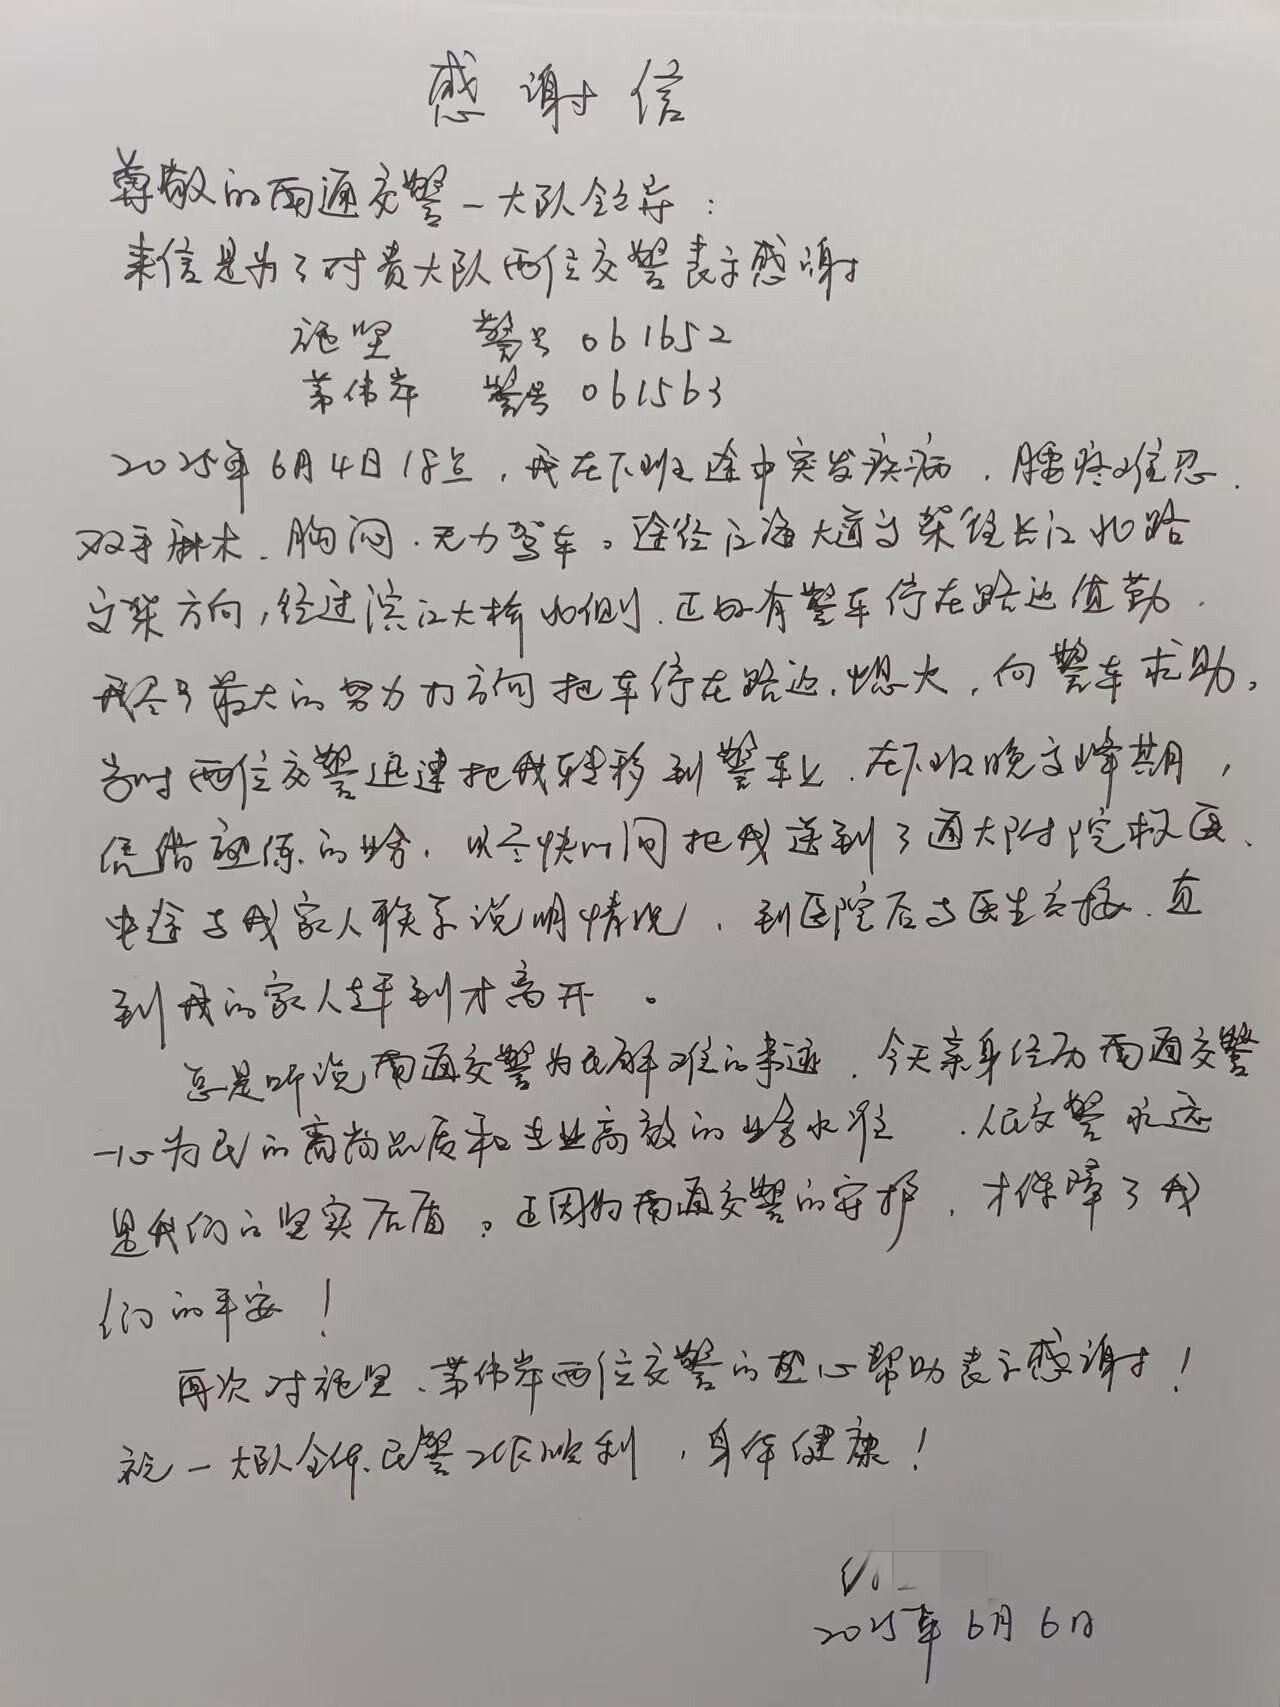 感谢信
尊敬的南通交警一大队领导：
来信是为了对贵大队两位交警表示感谢
施坚 警号 061652
茅伟岸 警号 061563
2025年6月4日18点，我在下班途中突发疾病，腰疼难忍，
双手麻木、胸闷、无力驾车。途经江海大道高架往长江北路
高架方向，经过滨江大桥北侧，正好有警车停在路边值勤，
我尽了最大的努力打方向把车停在路边，熄火，向警车求助，
当时两位交警迅速把我转移到警车上，在下班晚高峰期，
凭借熟练的业务，以尽快时间把我送到了通大附院救医，
中途与我家人联系说明情况，到医院后与医生交接，直
到我的家人赶到才离开。
总是听说南通交警为民解难的事迹，今天亲身经历南通交警
一心为民的高尚品质和专业高效的业务水准，人民交警永远
是我们的坚实后盾。正因为南通交警的守护，才保障了我
们的平安！
再次对施坚、茅伟岸两位交警的热心帮助表示感谢！
祝一大队全体民警工作顺利，身体健康！
2025年6月6日